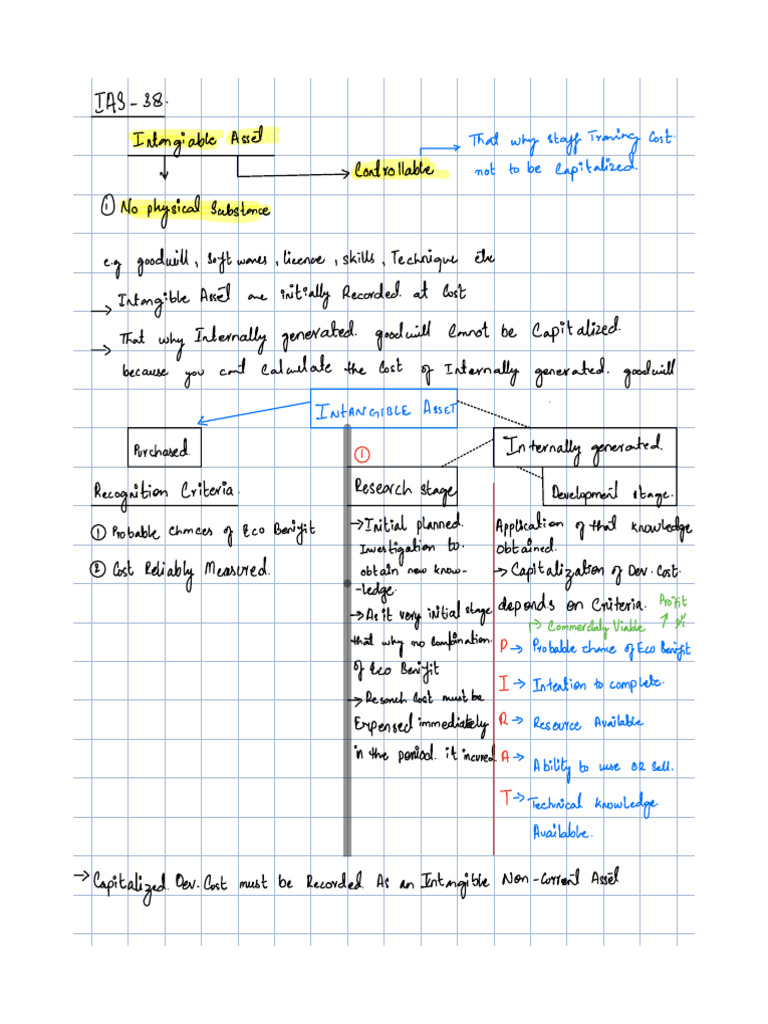 IAS-38.
Intangiable Asset
Controllable
That why staff Traning Cost.
not to be Capitalized.
① No physical Substance
e.g goodwill, Soft wares, licence, skills, Technique etc
→ Intangible Asset are initially Recorded at Cost
→ That why Internally generated goodwill Cannot be Capitalized.
because you can't Calculate the Cost of Internally generated goodwill
INTANGIBLE ASSET
Purchased.
Recognition Criteria.
① Probable chances of Eco Benifit
② Cost Reliably Measured.
Internally generated.
①
Research stage
→ Initial planned.
Investigation to
obtain new know-
-ledge.
→ As it very initial stage
that why no
of Eco Benifit
→ Research Cost must be
Expensed immediately
in the period it incured
Development stage.
Application of that knowledge
obtained.
→ Capitalization of Dev. Cost
depends on Criteria.
Profit
↳ Commercialy Viable
P → Probable chance of Eco Benifit
I → Intention to complete.
R → Resource Available
A → Ability to use OR sell.
T → Technical knowledge
Available.
→ Capitalized Dev. Cost must be Recorded As an Intangible Non-Current Asset